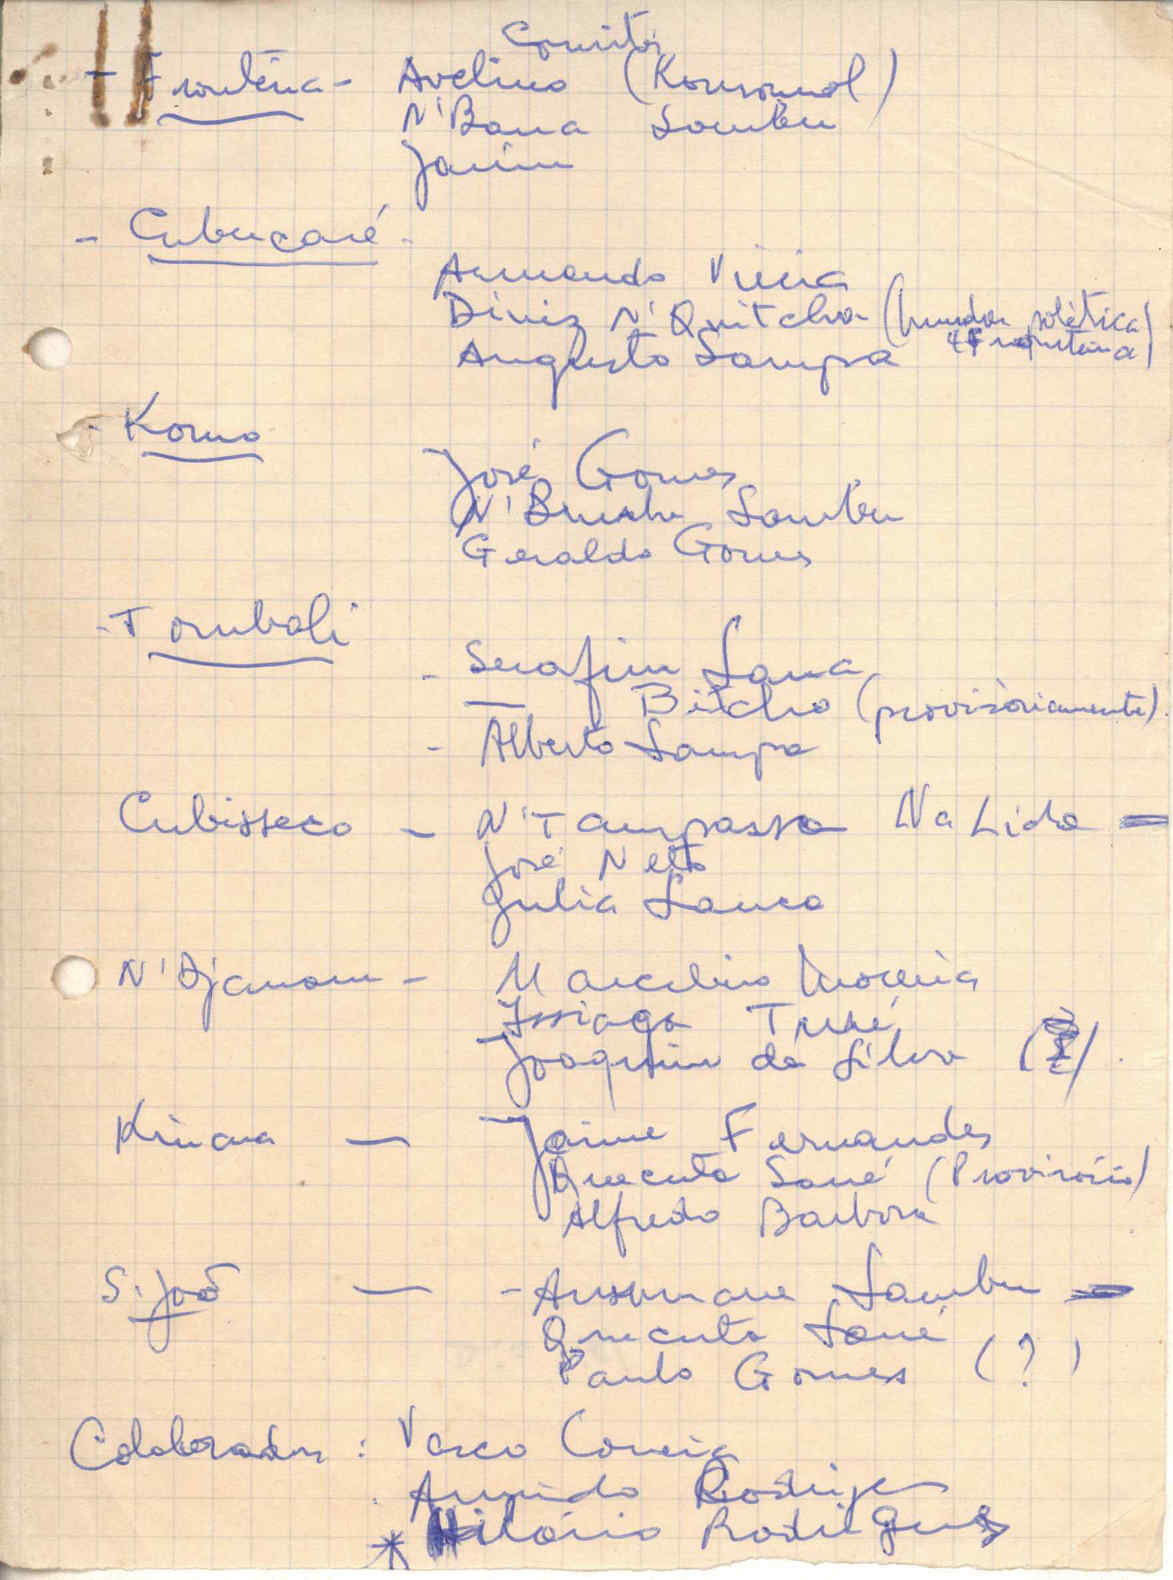 Comités
- Frontéria - Avelino (Komsomol)
N'Bana Sambu
Janin
- Cubucaré -
Armando Vieira
Diniz N'Quitcha ( política
Augusto Sampa
- Komo
José Gomes
N' Sambu
Geraldo Gomes
- Tombali
- Serafim Sana
— Bitcho (provisòriamente).
- Alberto Sampa
Cubisseco - N'Tampassa Na Lida =
José Neto
Julia Sanca
N'Djanam - Marcelino Moreira
Issiaga Turé
Joaquim da Silva ( ) .
Kinara — Jaime Fernandes
Quecuta Sané (Provisório)
Alfredo Barbosa
S. João — - Ansumane Sambu =
Quecuta Sané
Paulo Gomes (?)
Colaboradores : Vasco Correia
Armindo Rodrigues
* Hilário Rodrigues